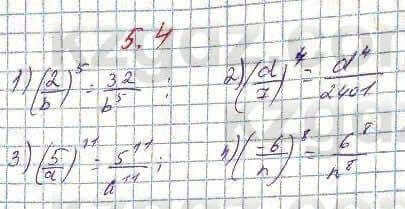 5.4
1) (2/b)^5 = 32/b^5 ; 2) (d/7)^4 = d^4/2401
3) (5/a)^11 = 5^11/a^11 ; 4) (-6/n)^8 = 6^8/n^8